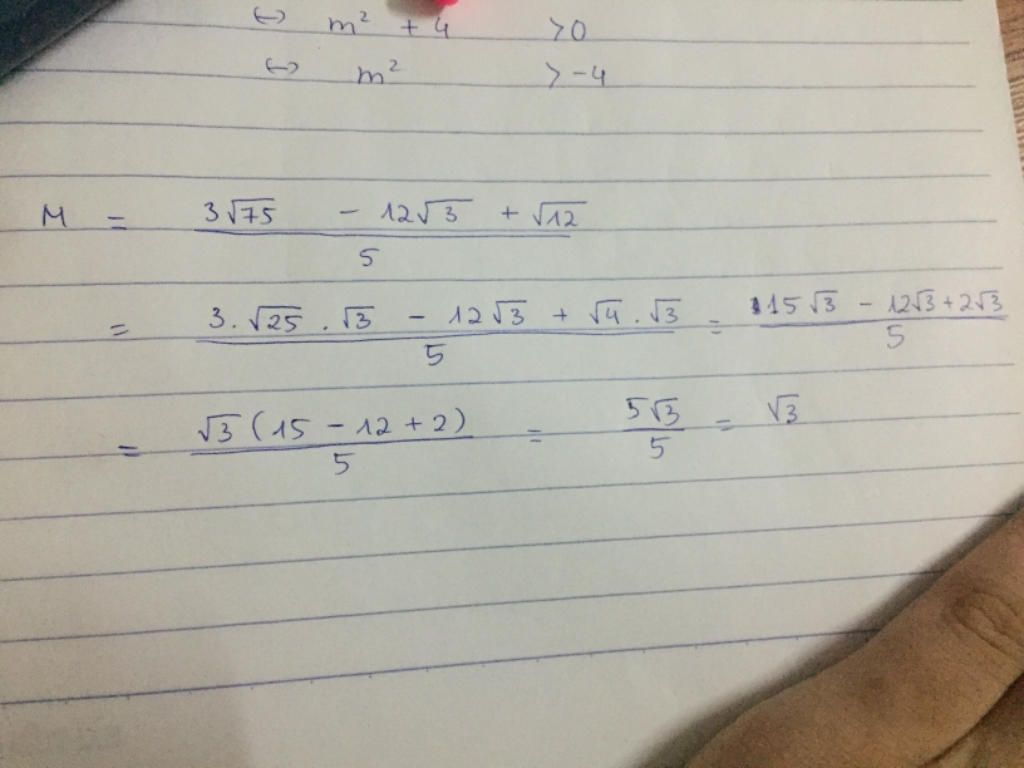 ↔ m² + 4 > 0
↔ m² > -4
M = (3√75 - 12√3 + √12) / 5
= (3.√25.√3 - 12√3 + √4.√3) / 5 = (15√3 - 12√3 + 2√3) / 5
= √3(15 - 12 + 2) / 5 = 5√3 / 5 = √3